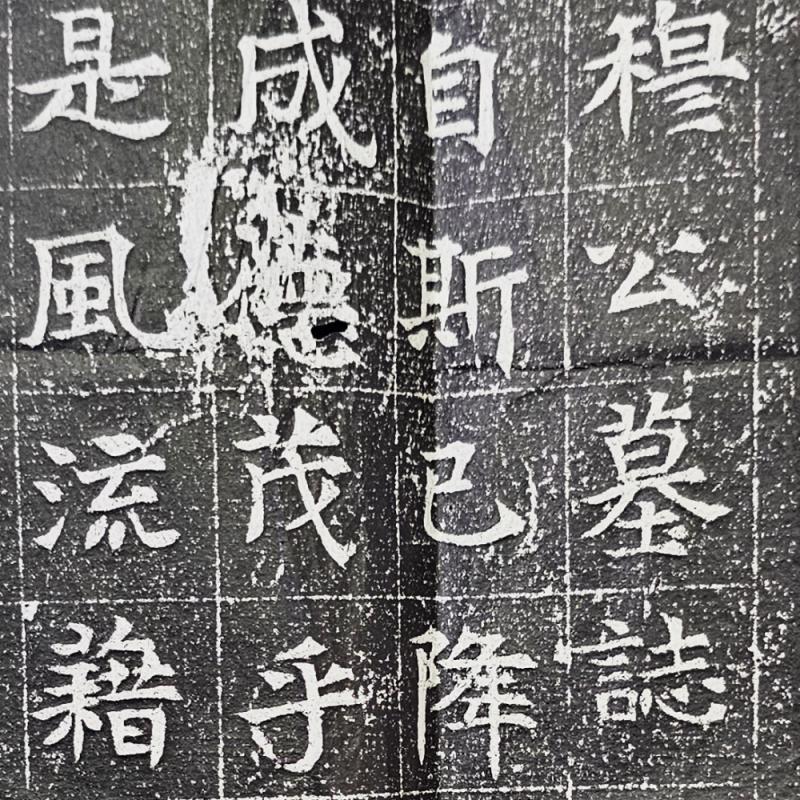 穆公墓誌
自斯已降
成德茂乎
是風流藉